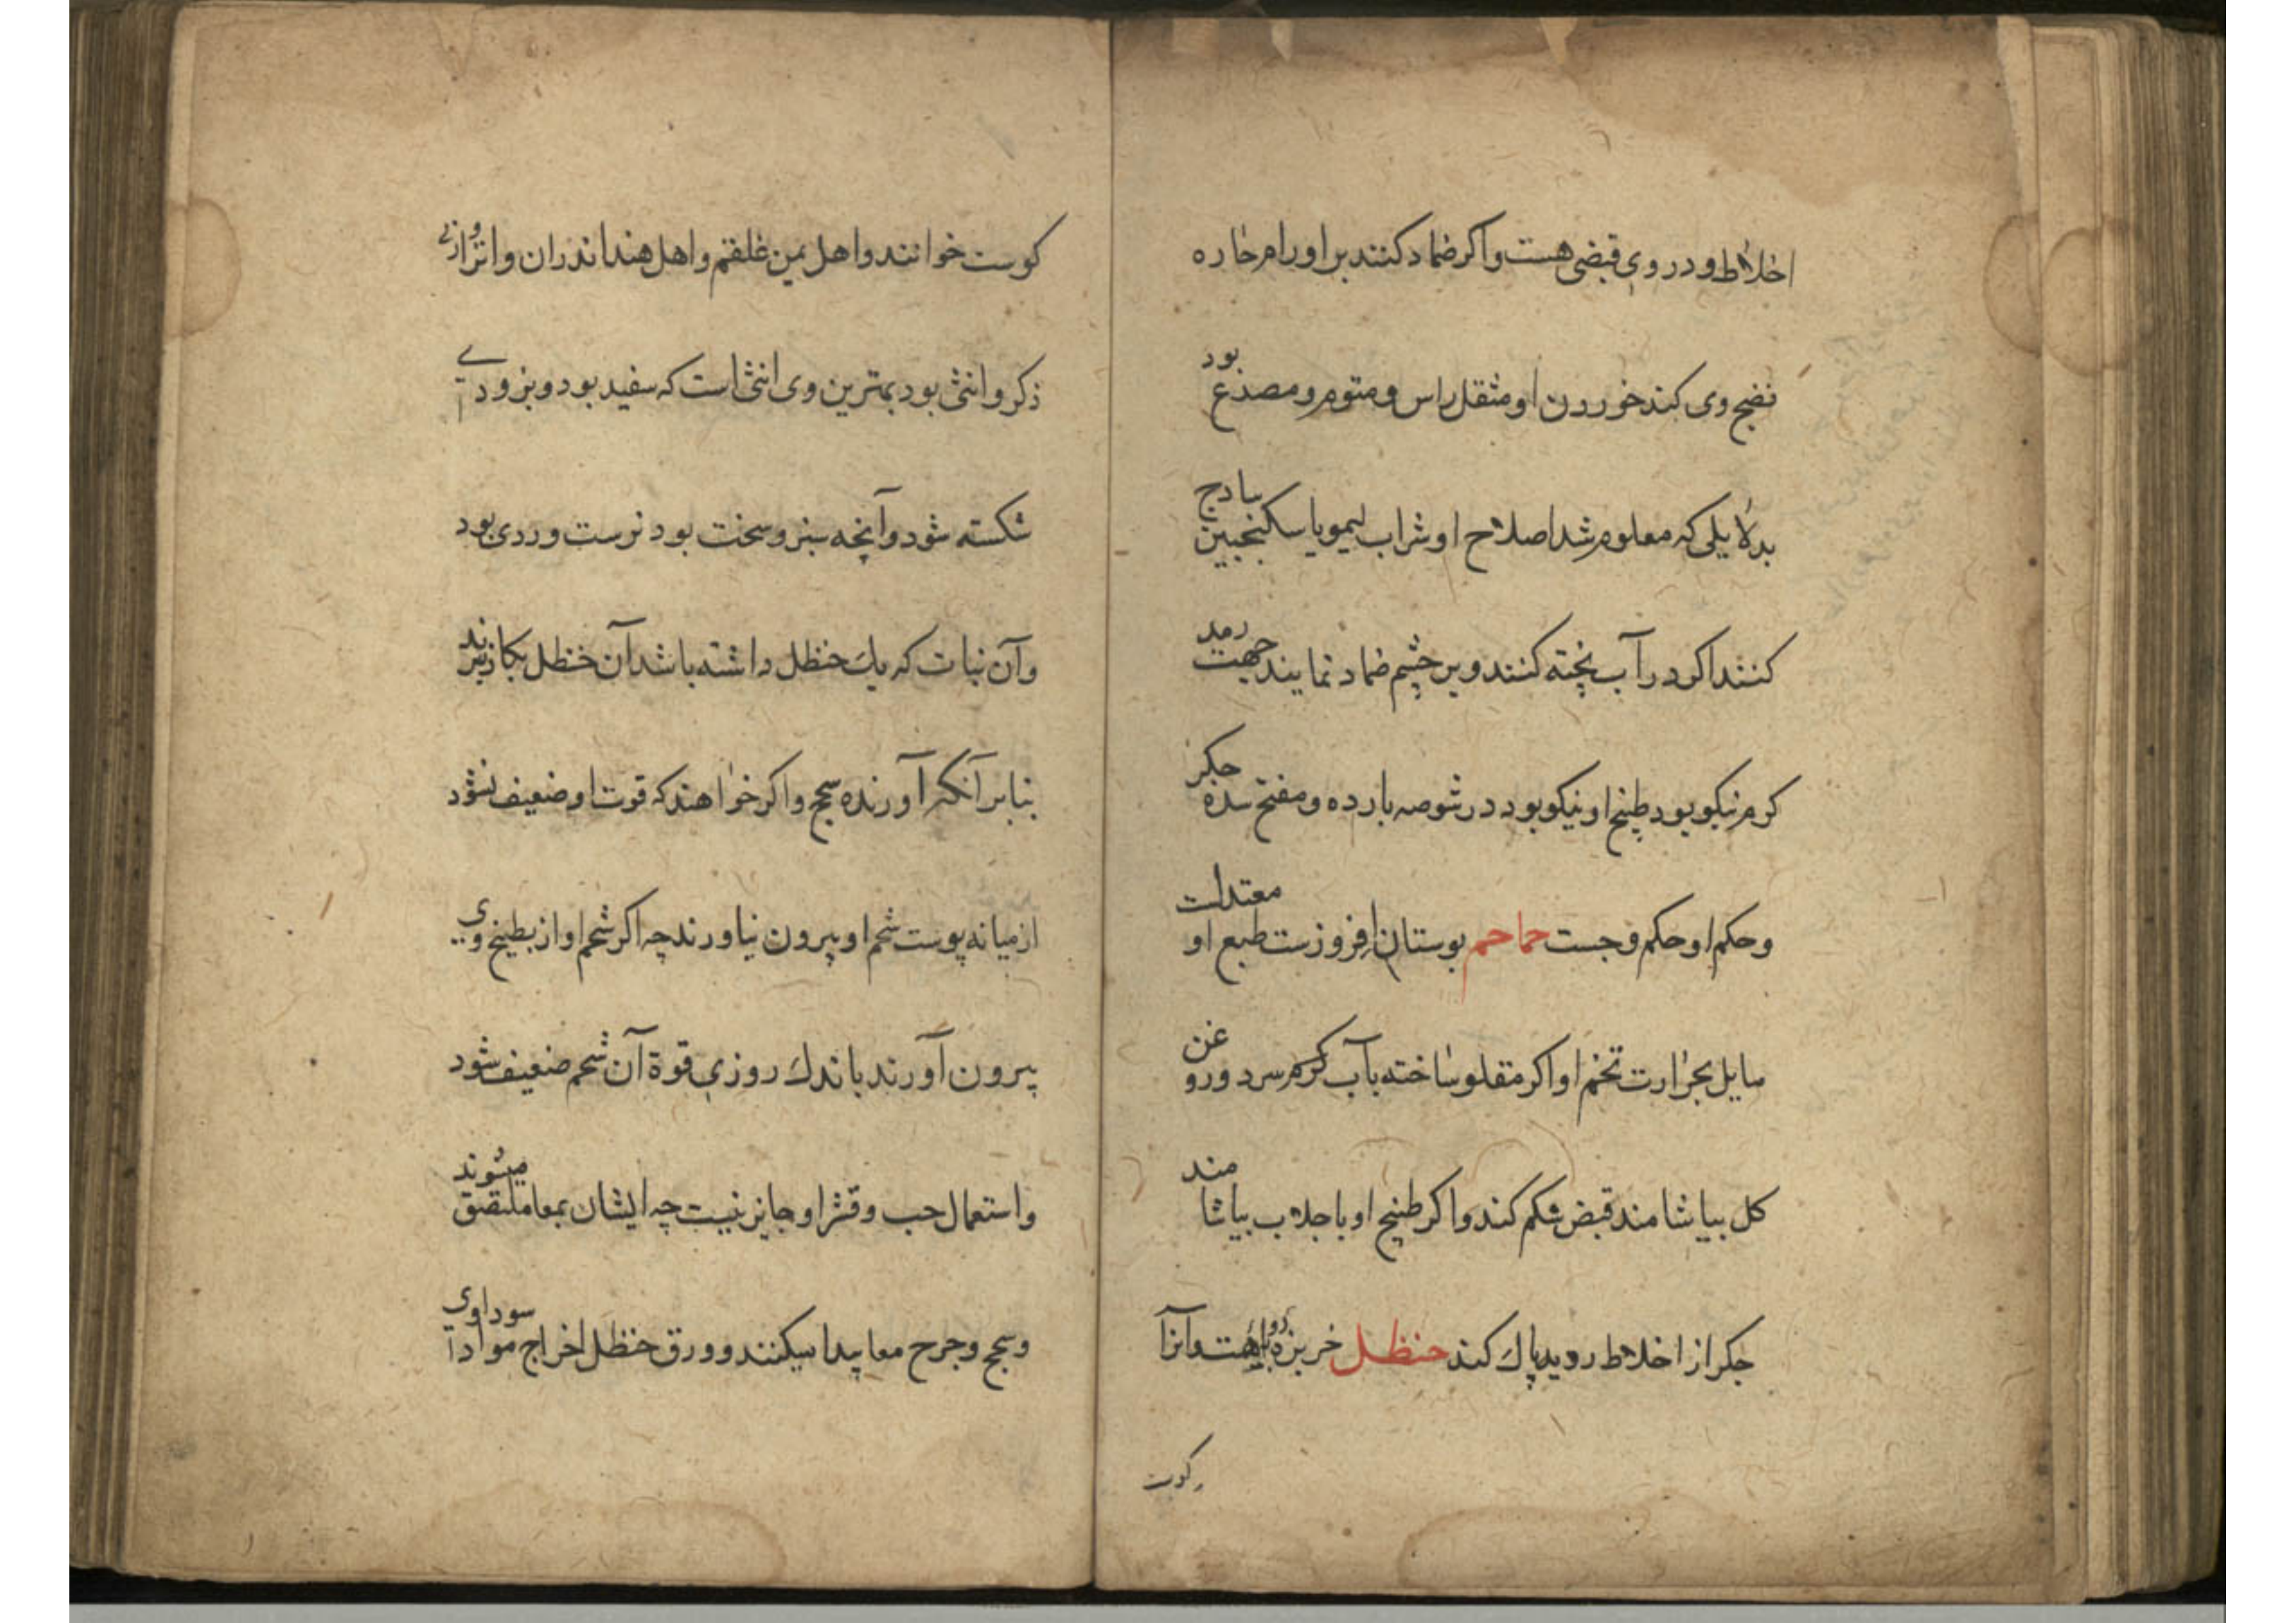 اخلاط و در وی قبضی هست و اکر ضماد کنند بر اورام حاره
نضج وی کند خوردن او مثقل راس و منوم و مصدع بود
بدلایلی که معلوم شد اصلاح او شراب لیمو یا سکنجبین سادج
کنند اکر در آب پخته کنند و بر چشم ضماد نمایند جهت رمد
کرم نیکو بود طبخ او نیکو بود در شوصه بارده و مفتح سده جکر
و حکم او حکم وجست حماحم بوستان افروزست طبع او معتدلست
مایل بحرارت تخم او اکر مقلو ساخته بآب کرم سرد و روغن
کل بیاشامند قبض شکم کند و اکر طبخ او با جلاب بیاشامند
جکر از اخلاط ردیه پاک کند حنظل خربزه روباهست و آنرا
کوست
کوست خوانند و اهل یمن غلفم و اهل هند اندران و انرا
ذکر و انثی بود بهترین وی انثی است که سفید بود و بزودی
شکسته شود و آنچه سبز و سخت بود نرست و ردی بود
و آن نبات که یک حنظل داشته باشد آن حنظل بکار نبرند
بنابر آنکه آورنده سحج و اکر خواهند که قوت او ضعیف نشود
از میانه پوست شحم او بیرون نیاورند چه اکر شحم او از بطیخ وی
بیرون آورند باندک روزی قوة آن شحم ضعیف شود
و استعمال حب و قشر او جایز نیست چه ایشان بمعا ملتصق میشوند
و سحج و جرح معا پیدا میکنند و ورق حنظل اخراج مواد سوداوی